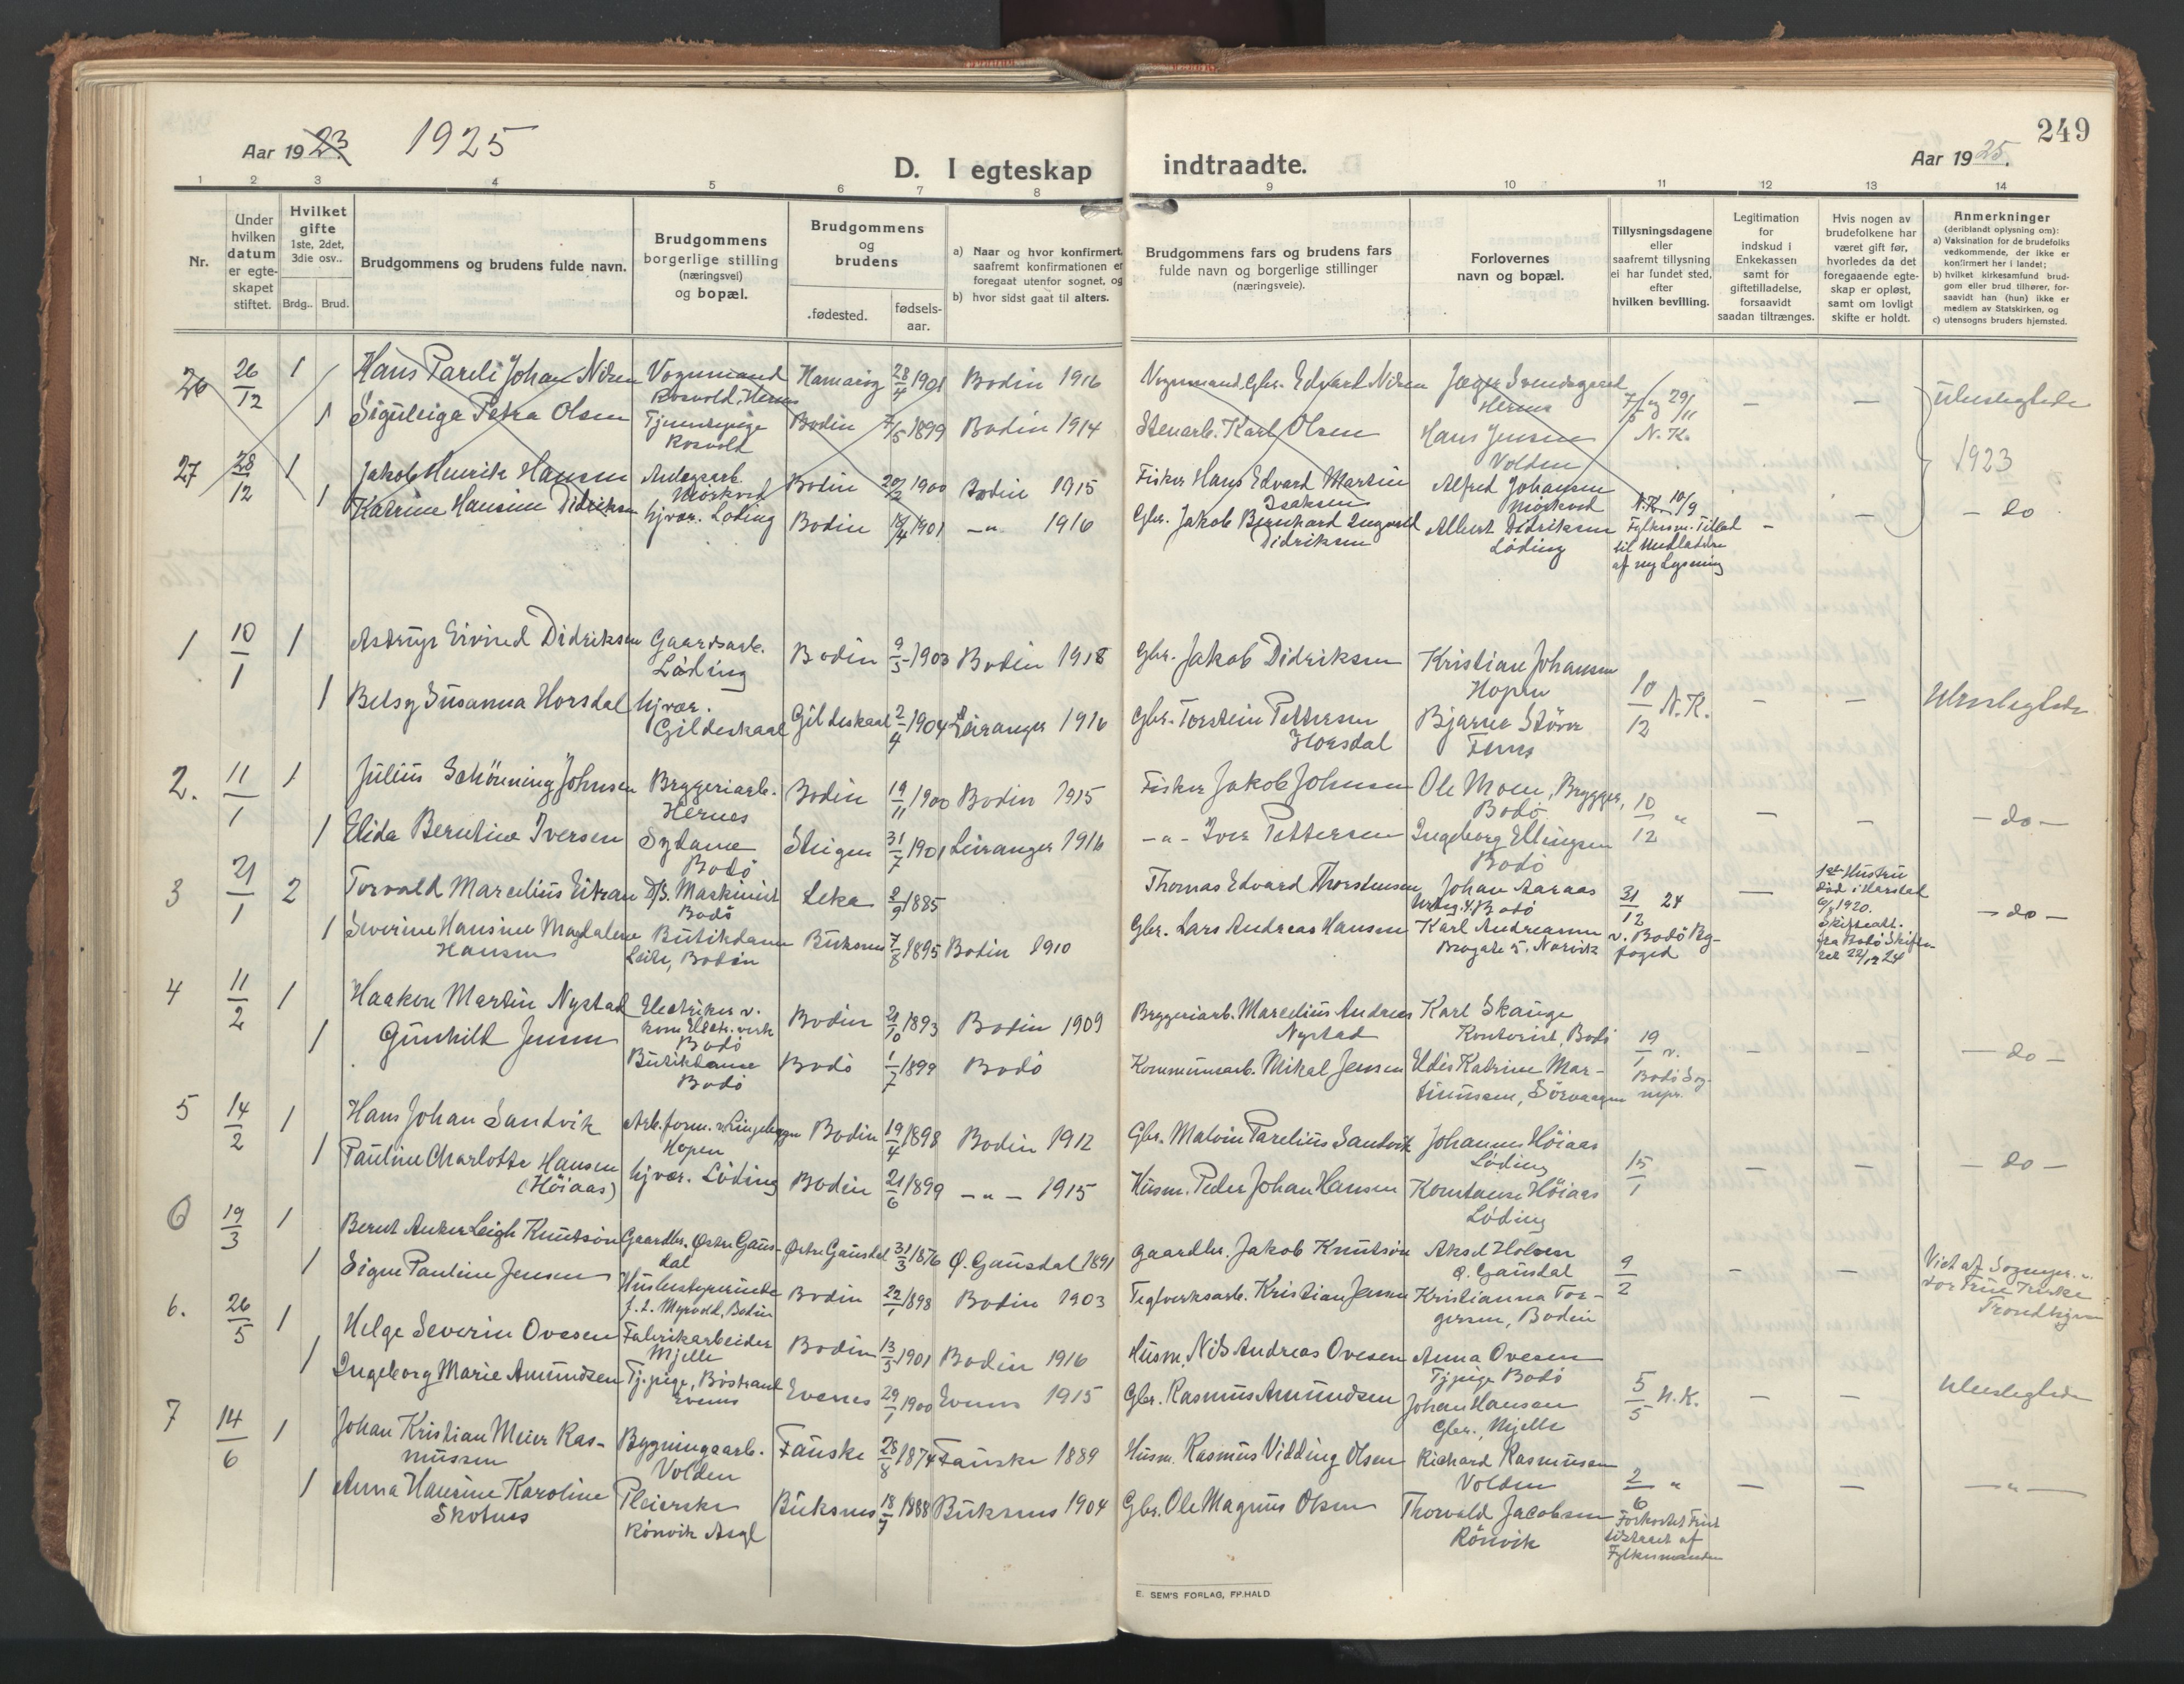 249
Aar 1923 1925
D. I egteskap indtraadte.
Aar 1925.
1 2 3 4 5 6 7 8 9 10 11 12 13 14
Nr.
Under hvilken datum er egte-skapet stiftet.
Hvilket gifte 1ste, 2det, 3die osv..
Brdg.. Brud.
Brudgommens og brudens fulde navn.
Brudgommens borgerlige stilling (næringsvei) og bopæl.
Brudgommens og brudens
fødested. fødsels-aar.
a) Naar og hvor konfirmert, saafremt konfirmationen er foregaat utenfor sognet, og
b) hvor sidst gaat til alters.
Brudgommens fars og brudens fars fulde navn og borgerlige stillinger (næringsveie).
Forlovernes navn og bopæl.
Tillysningsdagene eller saafremt tillysning ei har fundet sted, efter hvilken bevilling.
Legitimation for indskud i Enkekassen samt for giftetilladelse, forsaavidt saadan tiltrænges.
Hvis nogen av brudefolkene har været gift før, hvorledes da det foregaaende egte-skap er opløst, samt om lovligt skifte er holdt.
Anmerkninger (deriblandt oplysning om):
a) Vaksination for de brudefolks vedkommende, der ikke er konfirmert her i landet;
b) hvilket kirkesamfund brud-gom eller brud tilhører, for-saavidt han (hun) ikke er medlem av Statskirken, og
c) utensogns bruders hjemsted.
26 26/12 1 Hans Pareli Johan Nilsen Vognmand Rosvold, Hernes Hamarøy 28/4 1901 Bodin 1916 Vognmand, Gbr. Edvard Nilsen Jæger Svendsgaard Hernes 29/11 N.K. — — Ubeslegtede
1 Petra Olsen Tjenestepige Rosvold Bodin 7/5 1899 Bodin 1914 Stenarb. Karl Olsen Hans Jensen Volden
1923
27 28/12 1 Jakob Henrik Hansen Anlegsarb. Mörkved Bodin 20/2 1900 Bodin 1915 Fisker Hans Edvard Martin Isaksen Alfred Johansen Mörkved N.K. 10/9 — — do
1 Katrine Hansine Didriksen hjvær. Löding Bodin 1901 —"— 1916 Gbr. Jakob Bernhard Ingvard Didriksen Albert Didriksen Löding Fylkesm. Tillad til Undladelse af ny Lysning
1 10/1 1 Eivind Didriksen Gaardsarb. Löding Bodin 9/5 1903 Bodin 1918 Gbr. Jakob Didriksen Kristian Johansen Hopen 10/12 N.K. — — Ubeslegtede
1 Betsy Susanna Horsdal hjvær. Gildeskaal Gildeskaal 2/4 1904 Leiranger 1916 Gbr. Torstein Pettersen Horsdal Bjarne Större
2. 11/1 1 Julius Schönning Johnsen Bryggeriarb. Hernes Bodin 19/11 1900 Bodin 1915 Fisker Jakob Johnsen Ole Moen, Brygger, Bodö 10/12 " — — — do —
1 Elida Berntine Iversen Sydame Bodö Steigen 31/7 1901 Leiranger 1916 —"— Iver Pettersen Ingeborg Ellingsen Bodö
3 21/1 2 Torvald Marcelius Eitran D/S. Maskinist Bodö Leka 2/9 1885 Thomas Edvard Thorstensen Johan Aaraas Bodö 31/12 24 v. Bodö By-foged — 1ste Hustru död i Harstad 1920. Skifteatt. fra Bodö Skifteret 22/12 24 — do —
1 Severine Hansine Magdalene Hansen Butikdame Leite, Bodin Buksnes 7/8 1895 Bodin 1910 Gbr. Lars Andreas Hansen Karl Andreassen Brogate 5, Narvik
4 11/2 1 Haakon Martin Nystad Elektriker v. kom. Elektr. verk Bodö Bodin 21/10 1893 Bodin 1909 Bryggeriarb. Marcelius Andreas Nystad Karl Skauge Kontorist, Bodö 19/1 v. Bodö Sog-nepr. — — — do —
1 Gunhild Jensen Butikdame Bodö Bodö 1/7 1899 Bodö Kommunearb. Mikal Jensen Eldis Katrine Mar-tinussen, Sörvaagen
5 14/2 1 Hans Johan Sandvik Arb. form. Hopen Bodin 19/4 1898 Bodin 1912 Gbr. Malvin Parelius Sandvik Johannes Höiaas Löding 15/1 — — — do —
1 Pauline Charlotte Hansen (Höiaas) hjvær. Löding Bodin 21/6 1899 —"— 1915 Husm. Peder Johan Hansen Konstanse Höiaas Löding
6 19/3 1 Bernt Anker Leigh Knutsön Gaardbr. Östre Gaus-dal Östre Gausdal 31/3 1876 Ö. Gausdal 1891 Gaardbr. Jakob Knutsön Aksel Holsen Ö. Gausdal 9/2 — — Viet af Sognepr. v. Vor Frue Kirke Trondhjem
1 Signe Pauline Jensen Husbestyrerinde f. t. Myrvold, Bodin Bodin 22/1 1898 Bodin 1903 Teglverksarb. Kristian Jensen Kristianna Tor-gersen, Bodin
6. 26/5 1 Helge Severin Ovesen Fabrikarbeider Mjelle Bodin 13/5 1901 Bodin 1916 Husm. Nils Andreas Ovesen Anna Ovesen Tjpige Bodö 5/5 N.K. — — Ubeslegtede
1 Ingeborg Marie Amundsen Tj. pige, Böstrand Evenes Evenes 29/1 1900 Evenes 1915 Gbr. Rasmus Amundsen Johan Hansen Gbr., Mjelle
7 14/6 1 Johan Kristian Meier Ras-mussen Bygningsarb. Volden Fauske 28/8 1874 Fauske 1889 Husm. Rasmus Vidding Olsen Richard Rasmussen Volden 2/6 " — — — " —
1 Anna Hansine Karoline Skotnes Pleierske Rönvik Asyl Buksnes 18/7 1888 Buksnes 1904 Gbr. Ole Magnus Olsen Thorvald Jacobsen Rönvik Forkortet Frist tilstaaet af Fylkesmanden
E. SEM'S FORLAG, FR.HALD